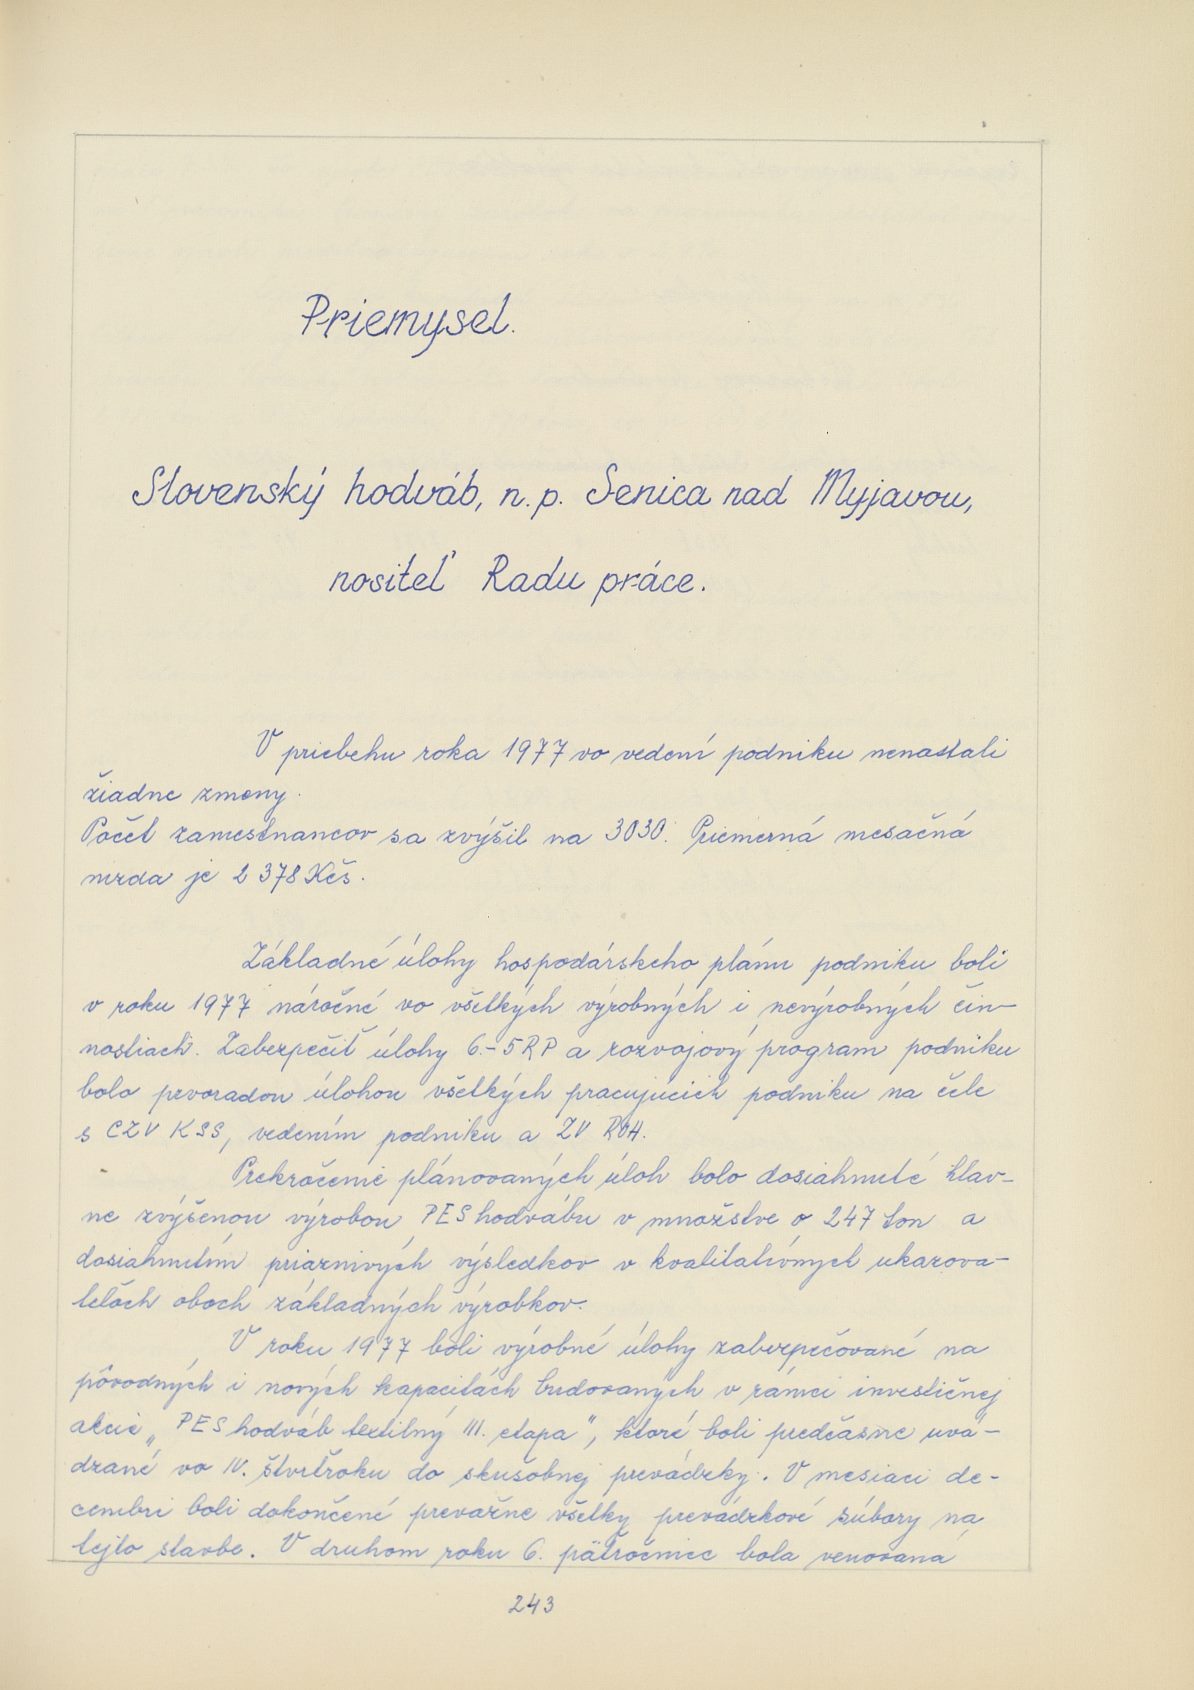 Priemysel.
Slovenský hodváb, n.p. Senica nad Myjavou,
nositeľ Radu práce.
V priebehu roka 1977 vo vedení podniku nenastali
žiadne zmeny.
Počet zamestnancov sa zvýšil na 3030. Priemerná mesačná
mzda je 2 378 Kčs.
Základné úlohy hospodárskeho plánu podniku boli
v roku 1977 náročné vo všetkých výrobných i nevýrobných čin-
nostiach. Zabezpečiť úlohy 6.-5RP a rozvojový program podniku
bolo prvoradou úlohou všetkých pracujúcich podniku na čele
s CZV KSS, vedením podniku a ZV ROH.
Prekročenie plánovaných úloh bolo dosiahnuté hlav-
ne zvýšenou výrobou PES hodvábu v množstve o 247 ton a
dosiahnutím priaznivých výsledkov v kvalitatívnych ukazova-
teľoch oboch základných výrobkov.
V roku 1977 boli výrobné úlohy zabezpečované na
pôvodných i nových kapacitách budovaných v rámci investičnej
akcie „PES hodváb textilný III. etapa", ktoré boli predčasne uvá-
dzané vo IV. štvrťroku do skušobnej prevádzky. V mesiaci de-
cembri boli dokončené prevažne všetky prevádzkové súbory na
tejto stavbe. V druhom roku 6. päťročnice bola venovaná
243